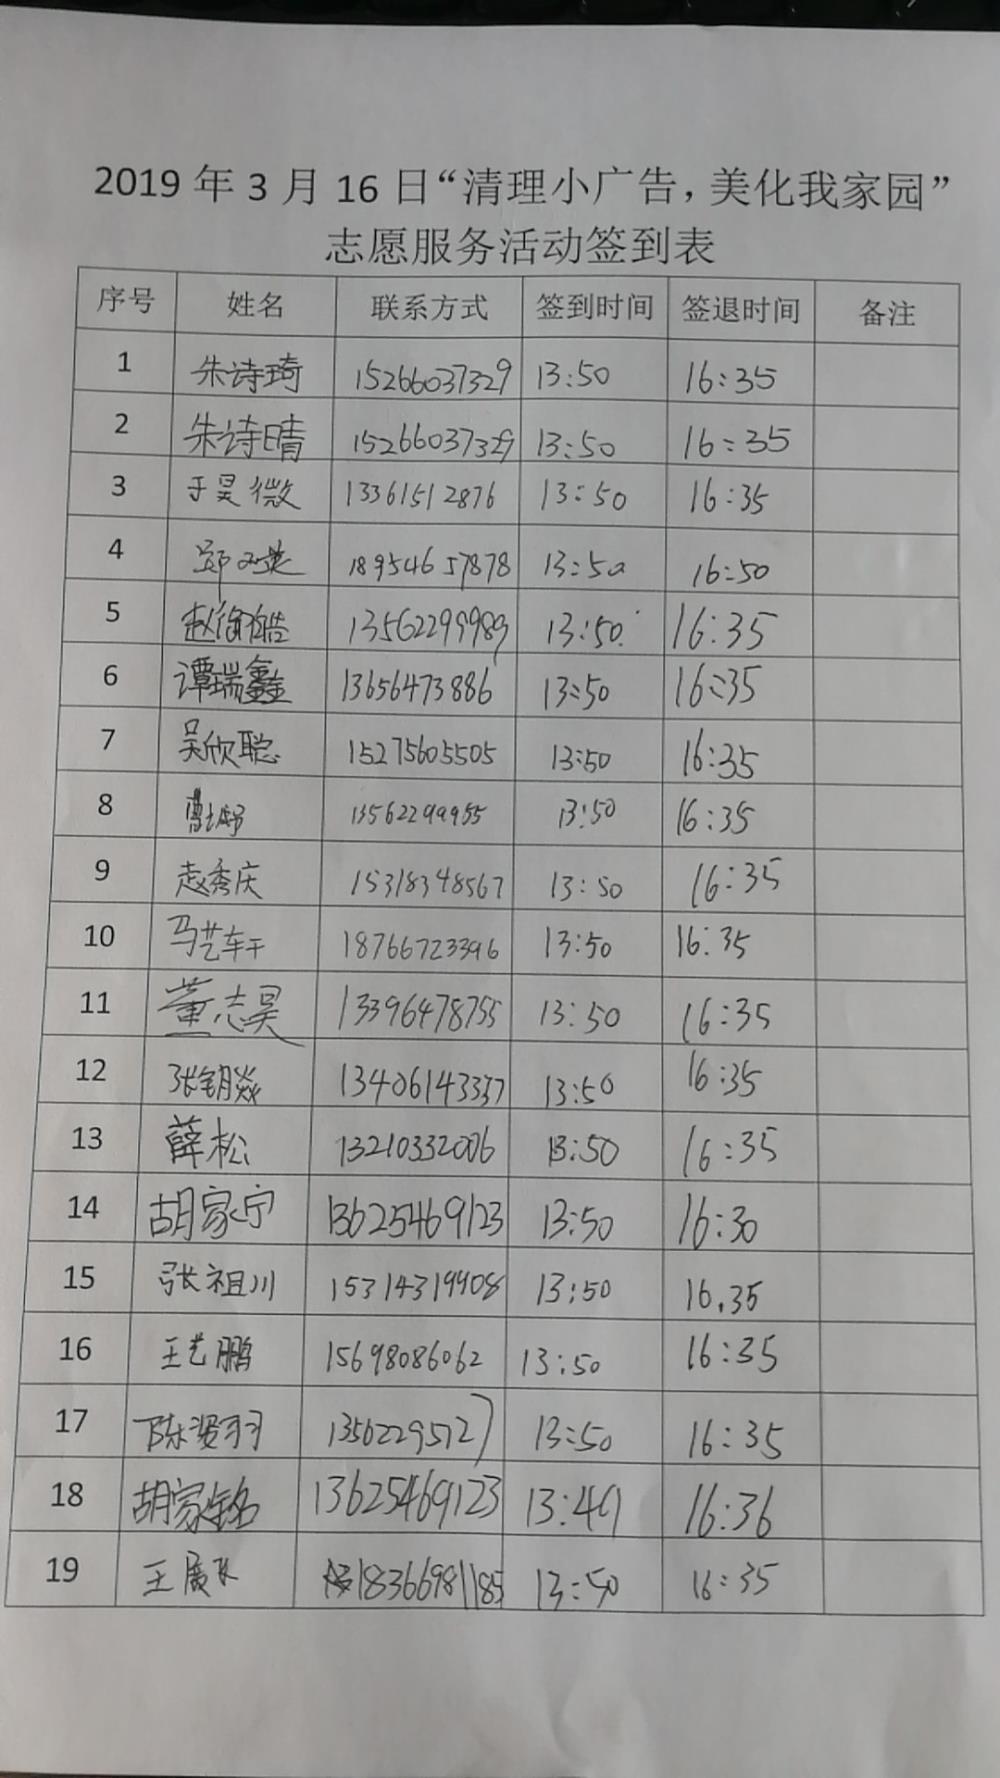 2019 年 3 月 16 日“清理小广告，美化我家园”
志愿服务活动签到表
序号 姓名 联系方式 签到时间 签退时间 备注
1 朱诗琦 15266037329 13:50 16:35
2 朱诗晴 15266037329 13:50 16:35
3 于昊微 13361512876 13:50 16:35
4 18954657878 13:50 16:50
5 赵俯皓 13562299989 13:50 16:35
6 谭瑞鑫 13656473886 13:50 16:35
7 吴欣聪 15275605505 13:50 16:35
8 13562299955 13:50 16:35
9 赵秀庆 15318348567 13:50 16:35
10 马艺轩 18766723396 13:50 16:35
11 董志昊 13396478755 13:50 16:35
12 张钥焱 13406143337 13:50 16:35
13 薛松 13210332006 13:50 16:35
14 胡家宁 13625469123 13:50 16:30
15 张祖川 15314319408 13:50 16.35
16 王艺鹏 15698086062 13:50 16:35
17 陈翌羽 13562295727 13:50 16:35
18 胡家铭 13625469123 13:49 16:36
19 王展飞 18366981185 13:50 16:35